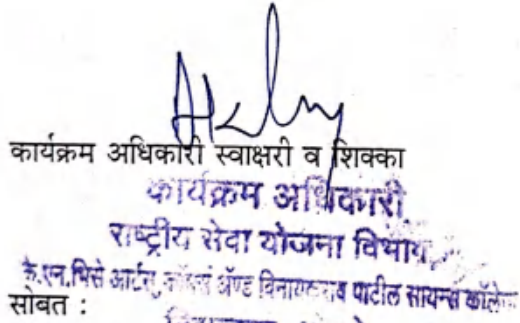 कार्यक्रम अधिकारी स्वाक्षरी व शिक्का
कार्यक्रम अधिकारी
राष्ट्रीय सेवा योजना विभाग
के.एन.भिसे आर्टस्, कॉमर्स अॅण्ड विनायकराव पाटील सायन्स कॉलेज
सोबत :